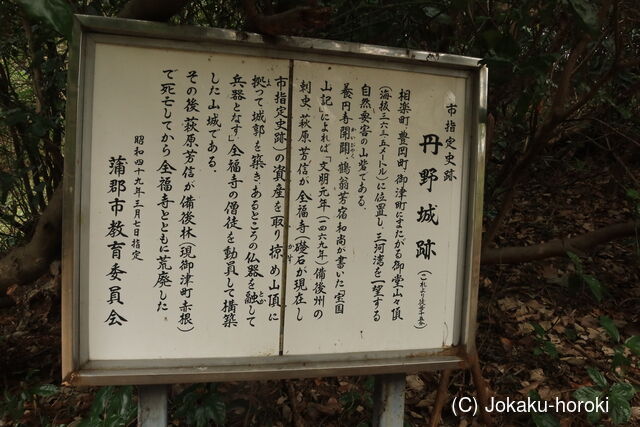 市指定史跡
丹野城跡
(これより徒歩十五分)
相楽町、豊岡町、御津町にまたがる御堂山々頂
(海抜三六三.五メートル)に位置し、三河湾を一望する
自然要害の山砦である。
養円寺開闢、鶴翁芳宿和尚が書いた「宝国
かいびゃく
山記」によれば「文明元年(一四六九年)備後州の
刺史、萩原芳信が全福寺(礎石が現在し
市指定史跡)の資産を取り掠め山頂に
かす
拠って城郭を築き、あるところの仏器を融して
よ
とか
兵器となす」全福寺の僧徒を動員して構築
した山城である。
その後萩原芳信が備後林(現御津町赤根)
で死亡してから全福寺とともに荒廃した。
昭和四十九年三月七日指定
蒲郡市教育委員会
(C) Jokaku-horoki